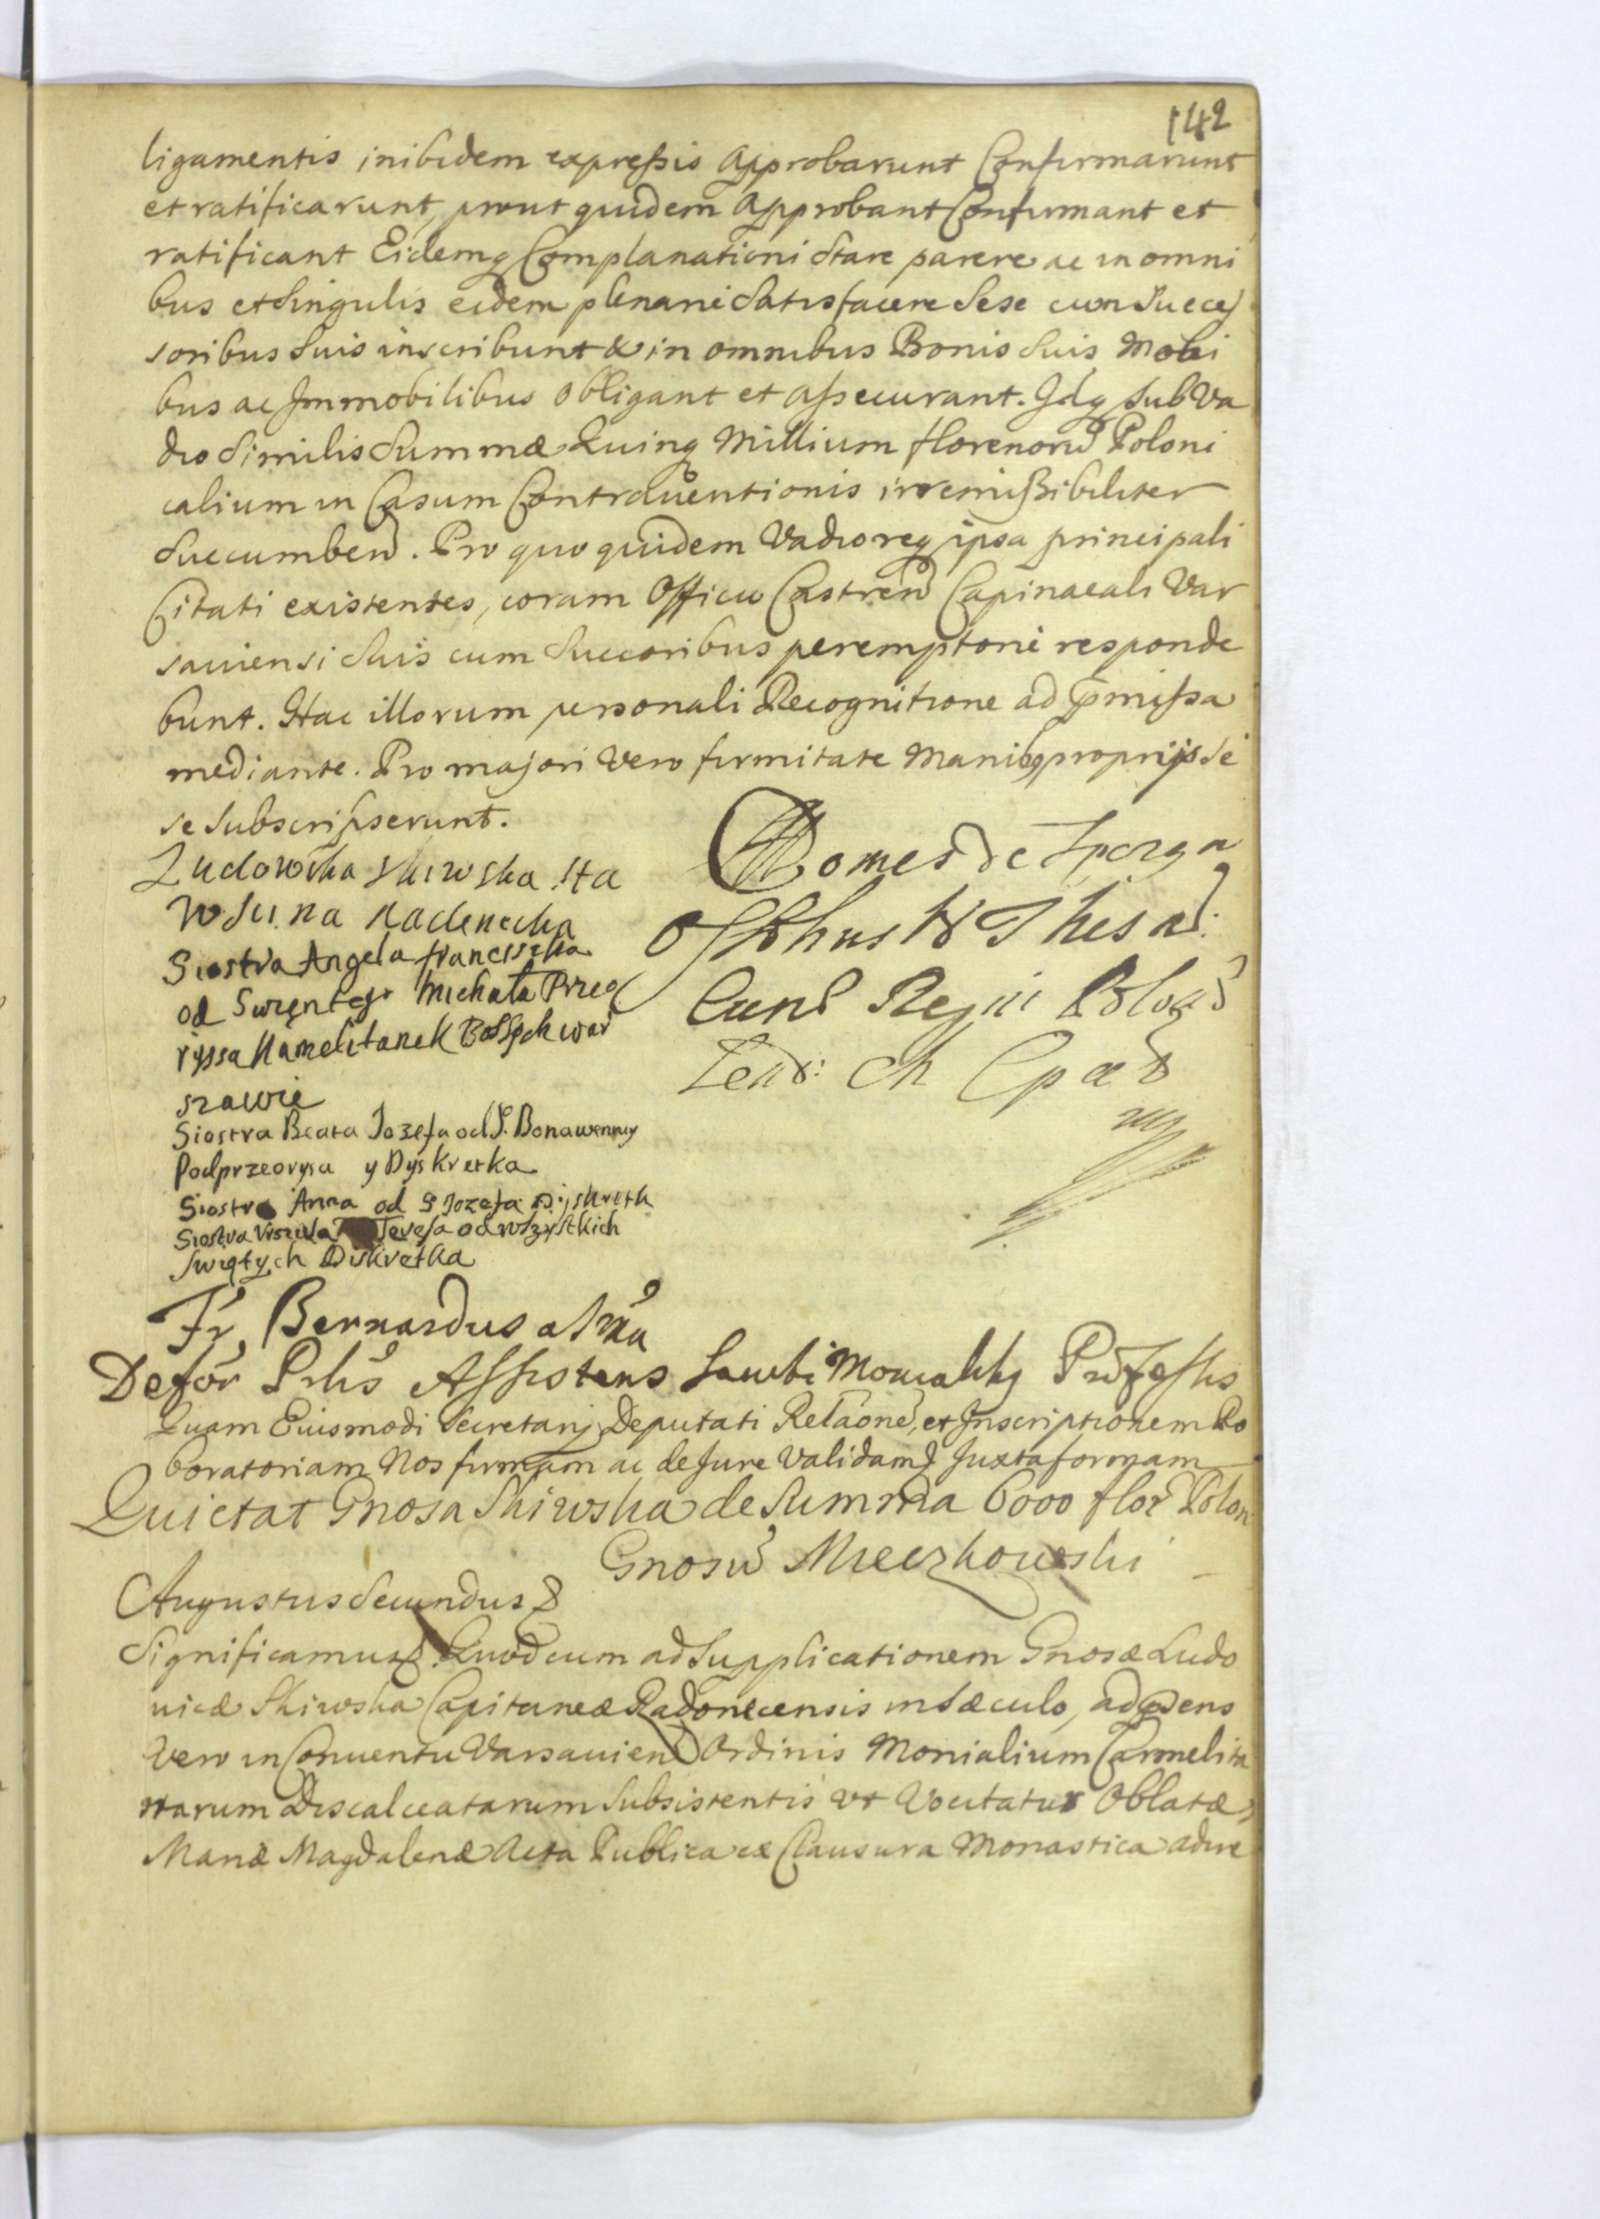 142
ligamentis inibidem expressis Approbarunt Confirmarunt
et ratificarunt, prout quidem Approbant Confirmant et
ratificant Eidemq Complanationi stare parere ac in omni
bus et singulis eidem plenarie satisfacere sese cum Succes
soribus suis inscribunt & in omnibus Bonis suis Mobi
bus ac Immobilibus obligant et assecurant. Idq sub Va
dio similis Summæ Quinq Millium florenorũ Poloni
calium in Casum Contrauentionis irremissibiliter
succumbend. Pro quo quidem Vadio req ipsa principali
Citati existentes, coram Officio Castren Capinaeali Var
sauiensi suis cum succoribus peremptorie responde
bunt. Hac illorum personali Recognitione ad pmissa
mediante. Pro majori vero firmitate Manibq proprijs se
se subscripserunt.
Ludowika Skiwska Sta
Comes de
Siostra Angela franciszka
od Swięntego Michała Przeo
ryssa Kamelitanek Bossych war
szawie
Siostra Beata Jozefa od S. Bonawentury
Podprzeorysa y Dyskretka
Siostra Anna od S Jozefa Dyskretk
Siostra Vrszula Teresa od wszystkich
Swiętych Diskretka
Fr. Bernardus a
Defor Assistens
Quam Eiusmodi Secretarij Deputati Relaõne, et Inscriptionem Ro
boratoriam Nos firmam ac de Jure Validam Juxta formam
Quietat Gnosa Skiwska de Summa 6000 flor Polon
Gnosũ Mieczkowski
Augustus Secundus
Significamus Quod cum ad Supplicationem Gnosæ Ludo
uicæ Skiwska Capitaneæ Radonecensis in Sæculo, ad psens
Vero in Conuentu Varsauien Ordinis Monialium Carmelita
narum Discalceatarum Subsistentis vt Vocitatur Oblatæ
Mariæ Magdalenæ Acta Publica ex Clausura Monastica adire